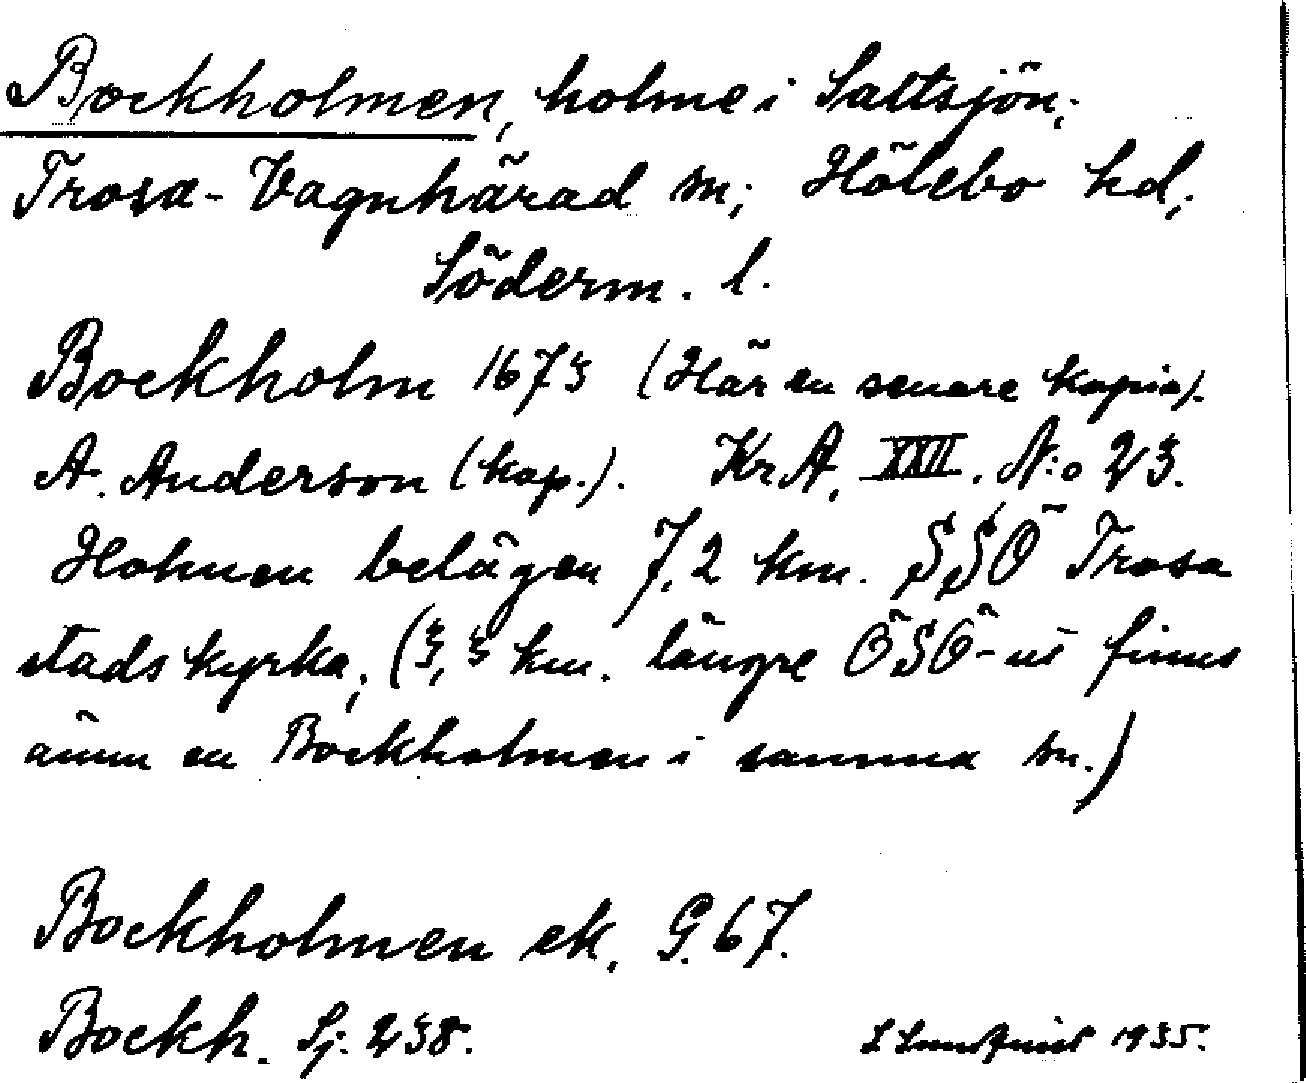 Bockholmen, holme i Saltsjön;
Trosa-Vagnhärad sn; Hölebo hd;
Söderm. l.
Bockholm 1673 (Här en senare kopia).
A. Anderson (kop.). Kr.A. XXII. N:o 23.
Holmen belägen 7,2 km. SSÖ Trosa
stadskyrka; (3,3 km. längre ÖSÖ-ut finns
ännu en Bockholmen i samma sn.)
Bockholmen ek. G. 67.
Bockh. Sj. 238.
1935.